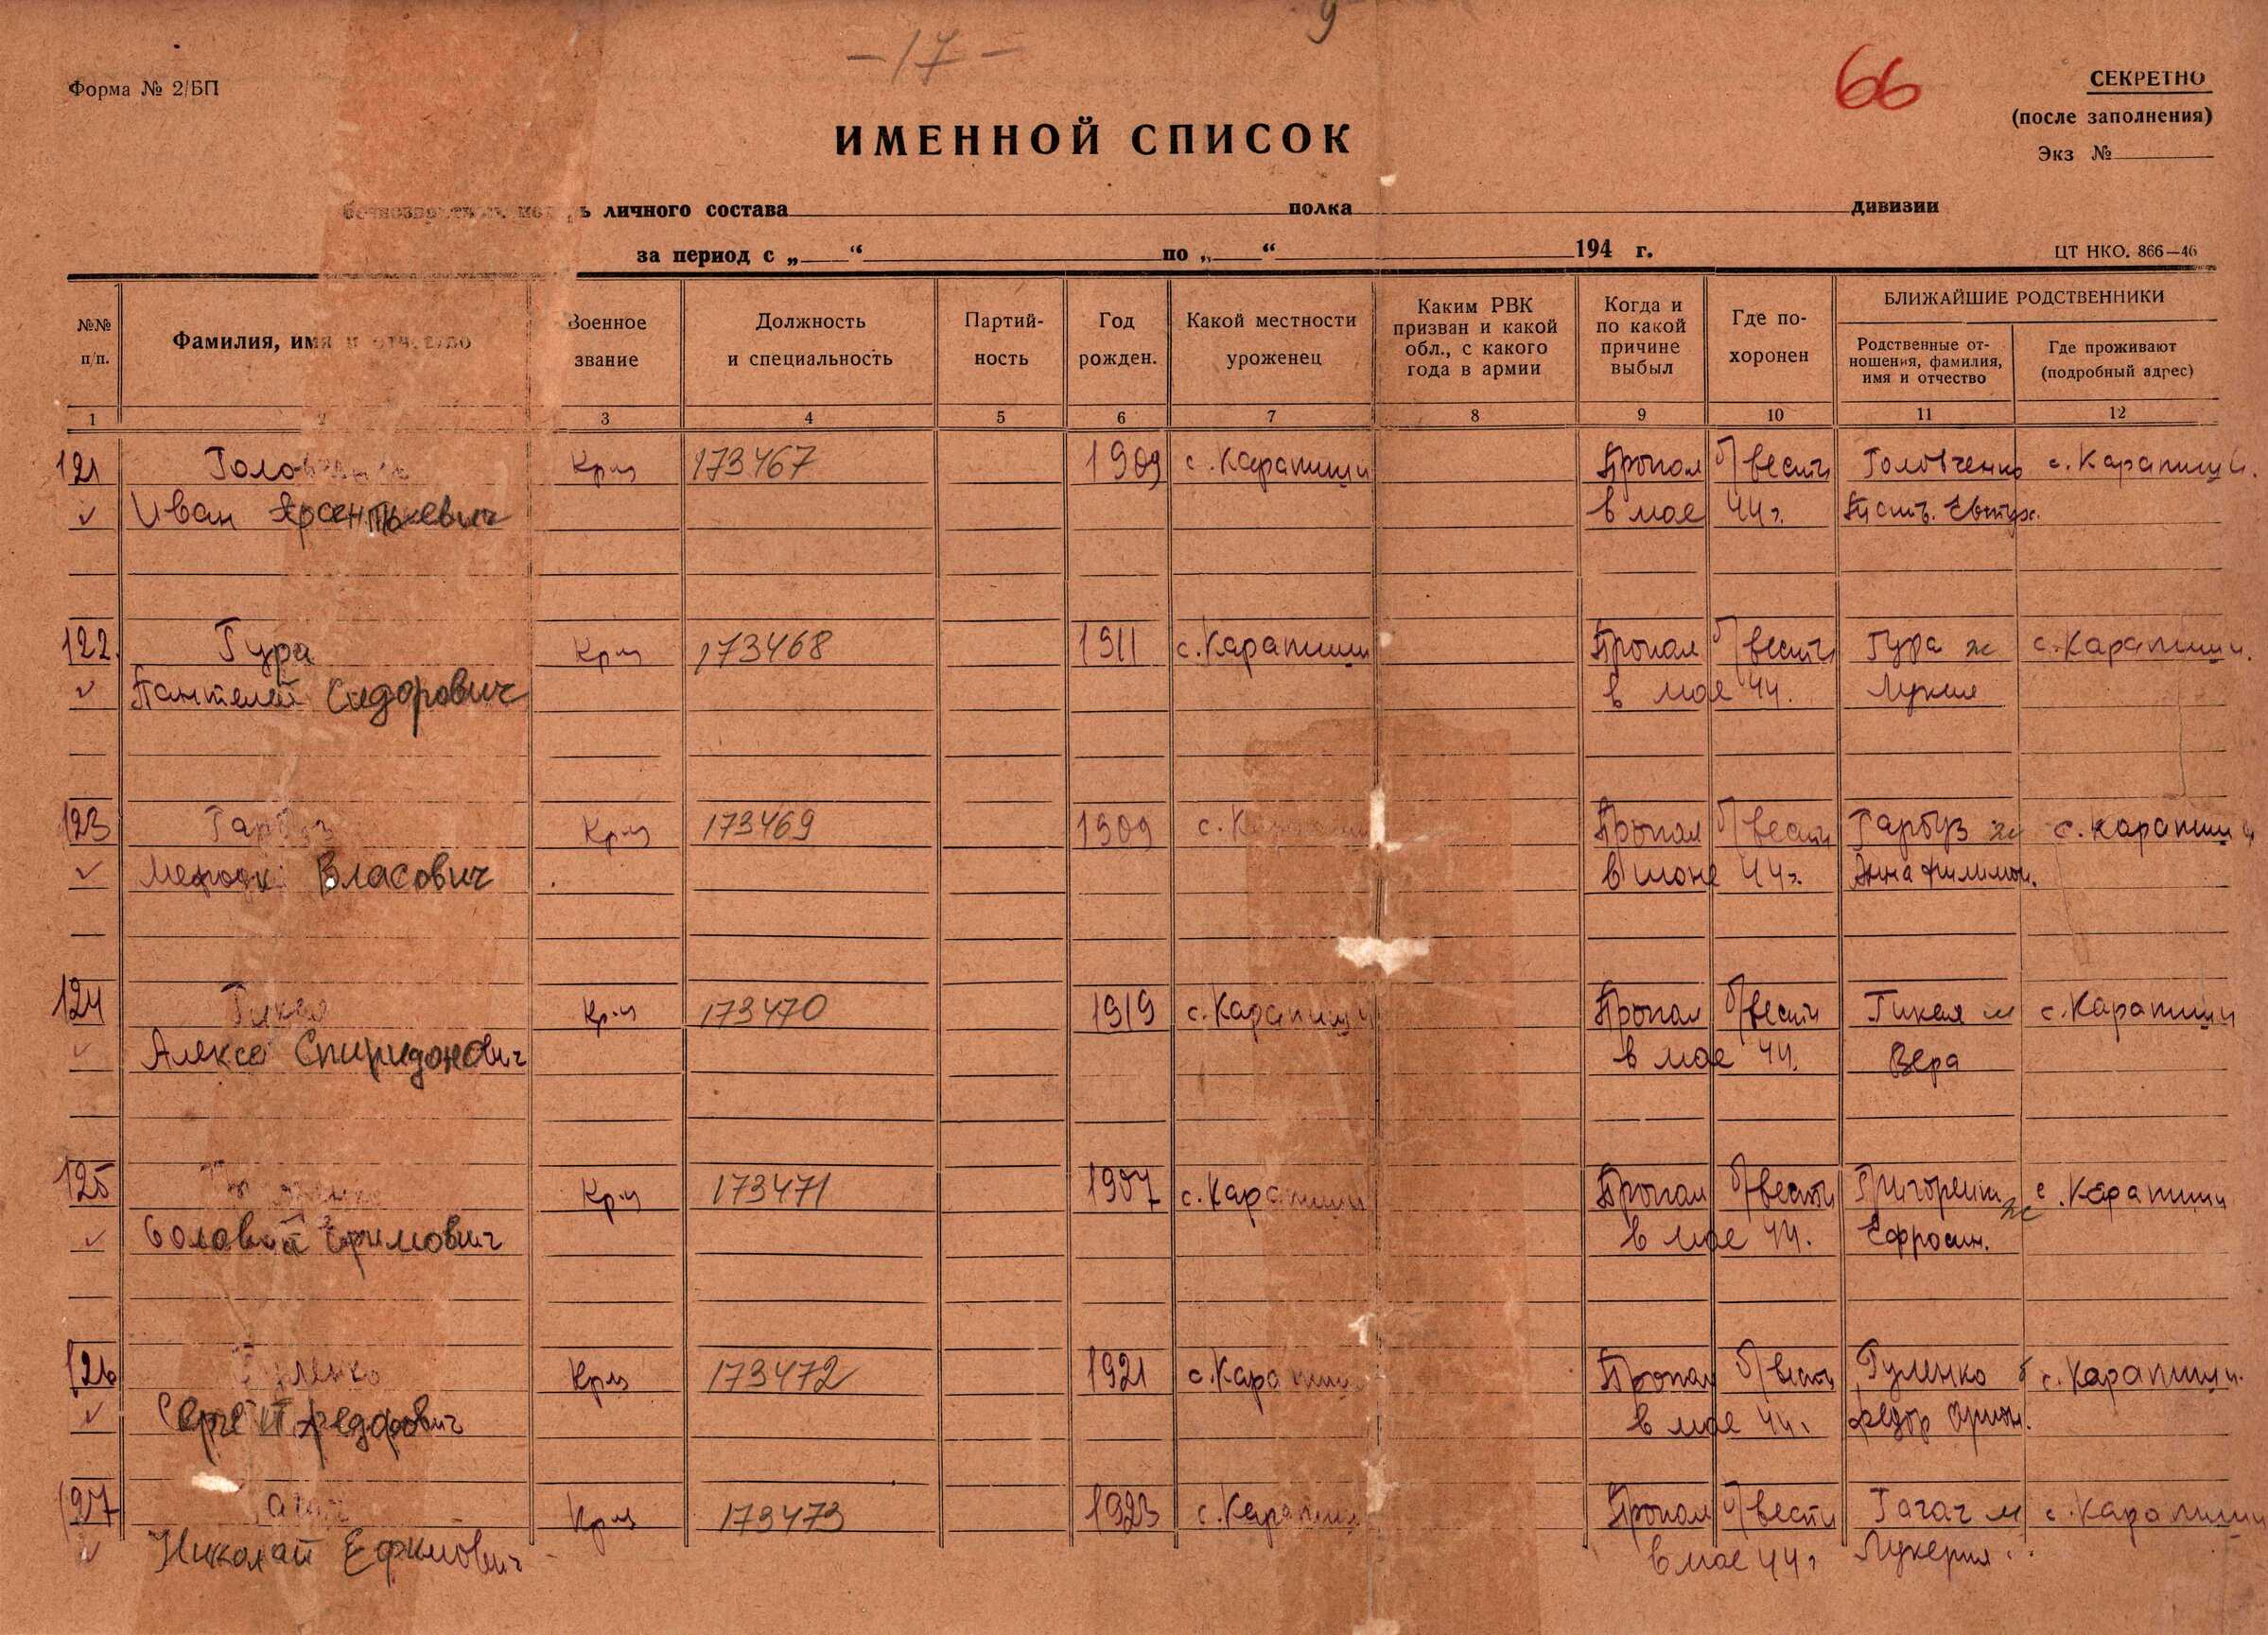 -17-
66
Форма № 2/БП
СЕКРЕТНО
(после заполнения)
Экз №
ИМЕННОЙ СПИСОК
личного состава полка дивизии
за период с „ “ по „ “ 194 г.
ЦТ НКО. 866—46
№№ п/п.
Фамилия, имя и отчество
Военное звание
Должность и специальность
Партий-ность
Год рожден.
Какой местности уроженец
Каким РВК призван и какой обл., с какого года в армии
Когда и по какой причине выбыл
Где по-хоронен
БЛИЖАЙШИЕ РОДСТВЕННИКИ
Родственные от-ношения, фамилия, имя и отчество
Где проживают (подробный адрес)
1 2 3 4 5 6 7 8 9 10 11 12
121 Кр-ц 173467 1909 с. Карапиши Пропал б/вести Головченко с. Карапиши.
Иван Арсентьевич в мае 44г.
122. Гура Кр-ц 173468 1911 с. Карапиши Пропал б/вести Гура ж с. Карапиши.
Пантелей Сидорович в мае 44.
123 Гарбуз Кр-ц 173469 1909 с. Пропал б/вести Гарбуз ж с. Карапиши
Власович 44г. Анна Филимон.
124 Кр-ц 173470 1919 с. Карапиши Пропал б/вести Гикая м с. Карапиши
Алексей Спиридонович в мае 44. Вера
125 Кр-ц 173471 1907 с. Карапиши Пропал б/вести ж с. Карапиши
Ефимович в мае 44. Ефросин.
126 Гуленко Кр-ц 173472 1921 с. Карапиши Пропал б/вести Гуленко с. Карапиши.
Сергей Федорович в мае 44. Федор
127 Кр-ц 173473 1923 с. Карапиши Пропал б/вести Гагач м с. Карапиши
Николай Ефимович в мае 44г Лукерия